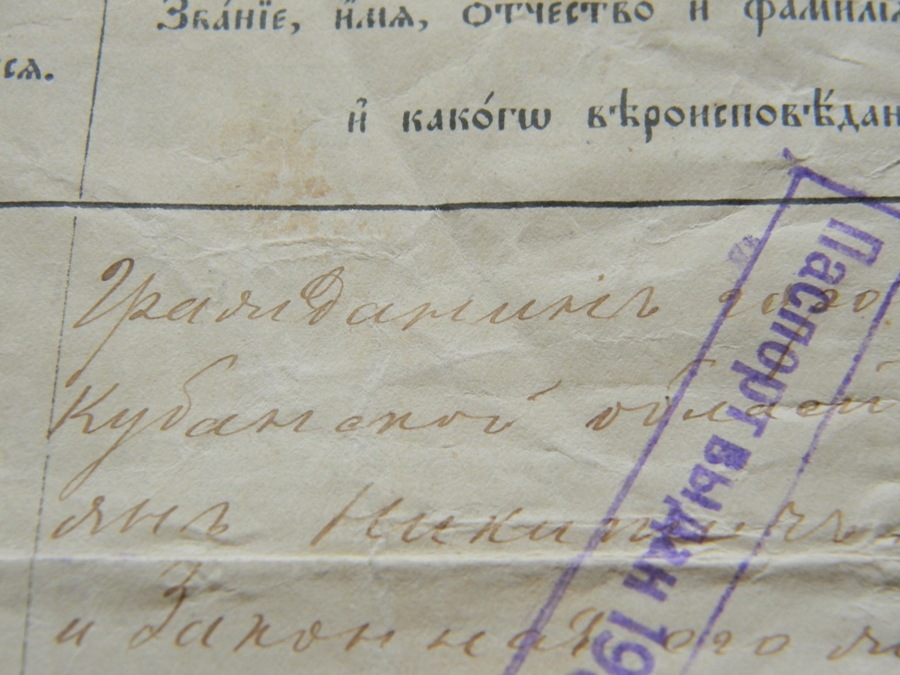 Зва́нїе, и҆́мѧ, ѻтчество и фамилїѧ
сѧ.
и҆ како́гѡ вѣроисповѣ́дан
Гражданинъ
Кубанской области
янъ Никитичъ
и Законная его
Паспорт выдан 19